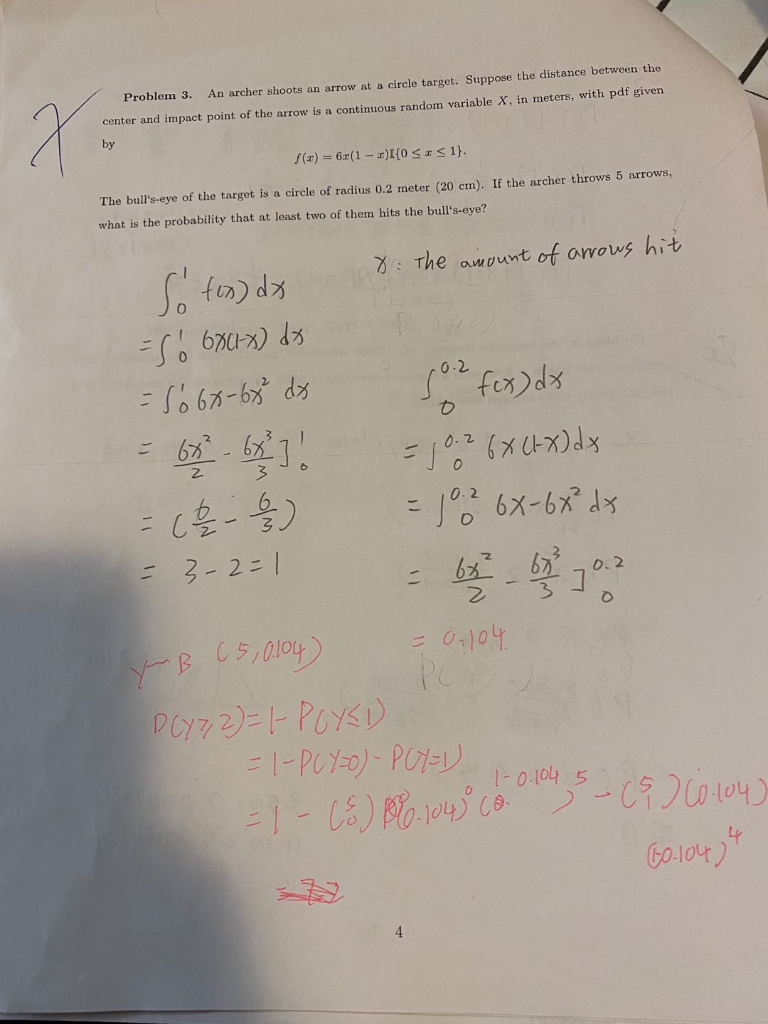 Problem 3. An archer shoots an arrow at a circle target. Suppose the distance between the
center and impact point of the arrow is a continuous random variable X, in meters, with pdf given
by
f(x) = 6x(1 − x)𝟙{0 ≤ x ≤ 1}.
The bull's-eye of the target is a circle of radius 0.2 meter (20 cm). If the archer throws 5 arrows,
what is the probability that at least two of them hits the bull's-eye?
x : The amount of arrows hit
∫₀¹ f(x) dx
= ∫₀¹ 6x(1-x) dx
= ∫₀¹ 6x-6x² dx
= 6x²/2 - 6x³/3 ]₀¹
= (6/2 - 6/3)
= 3-2=1
∫₀^0.2 f(x) dx
= ∫₀^0.2 6x(1-x)dx
= ∫₀^0.2 6x-6x² dx
= 6x²/2 - 6x³/3 ]₀^0.2
= 0.104
Y~B (5,0.104)
P(Y≥2)=1-P(Y≤1)
=1-P(Y=0)-P(Y=1)
=1-(5 0)(0.104)⁰(1-0.104)⁵-(5 1)(0.104)
(1-0.104)⁴
4